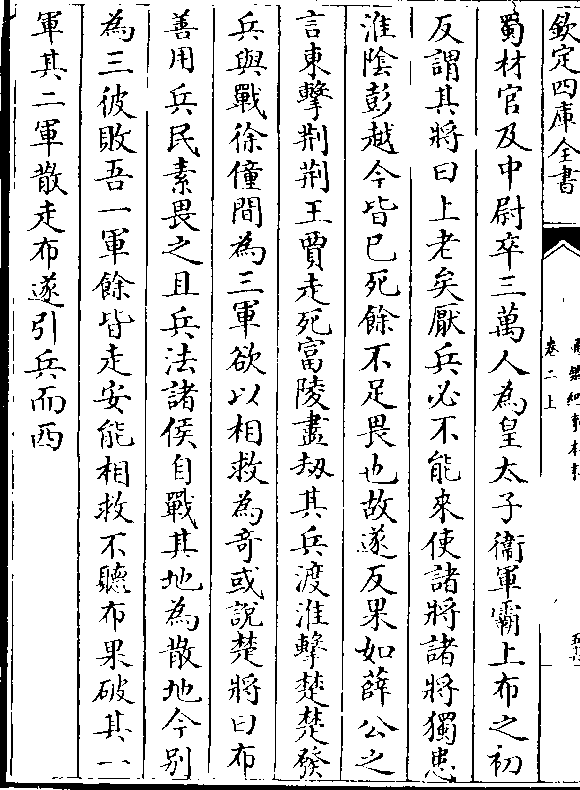 欽定四庫全書
卷二上
蜀材官及中尉卒三萬人為皇太子衛軍霸上布之初
反謂其將曰上老矣厭兵必不能來使諸將諸將獨患
淮陰彭越今皆已死餘不足畏也故遂反果如薛公之
言東擊荆荆王賈走死富陵盡刼其兵渡淮擊楚楚發
兵與戰徐僮間為三軍欲以相救為竒或說楚將曰布
善用兵民素畏之且兵法諸侯自戰其地為散地今别
為三彼敗吾一軍餘皆走安能相救不聽布果破其一
軍其二軍散走布遂引兵而西